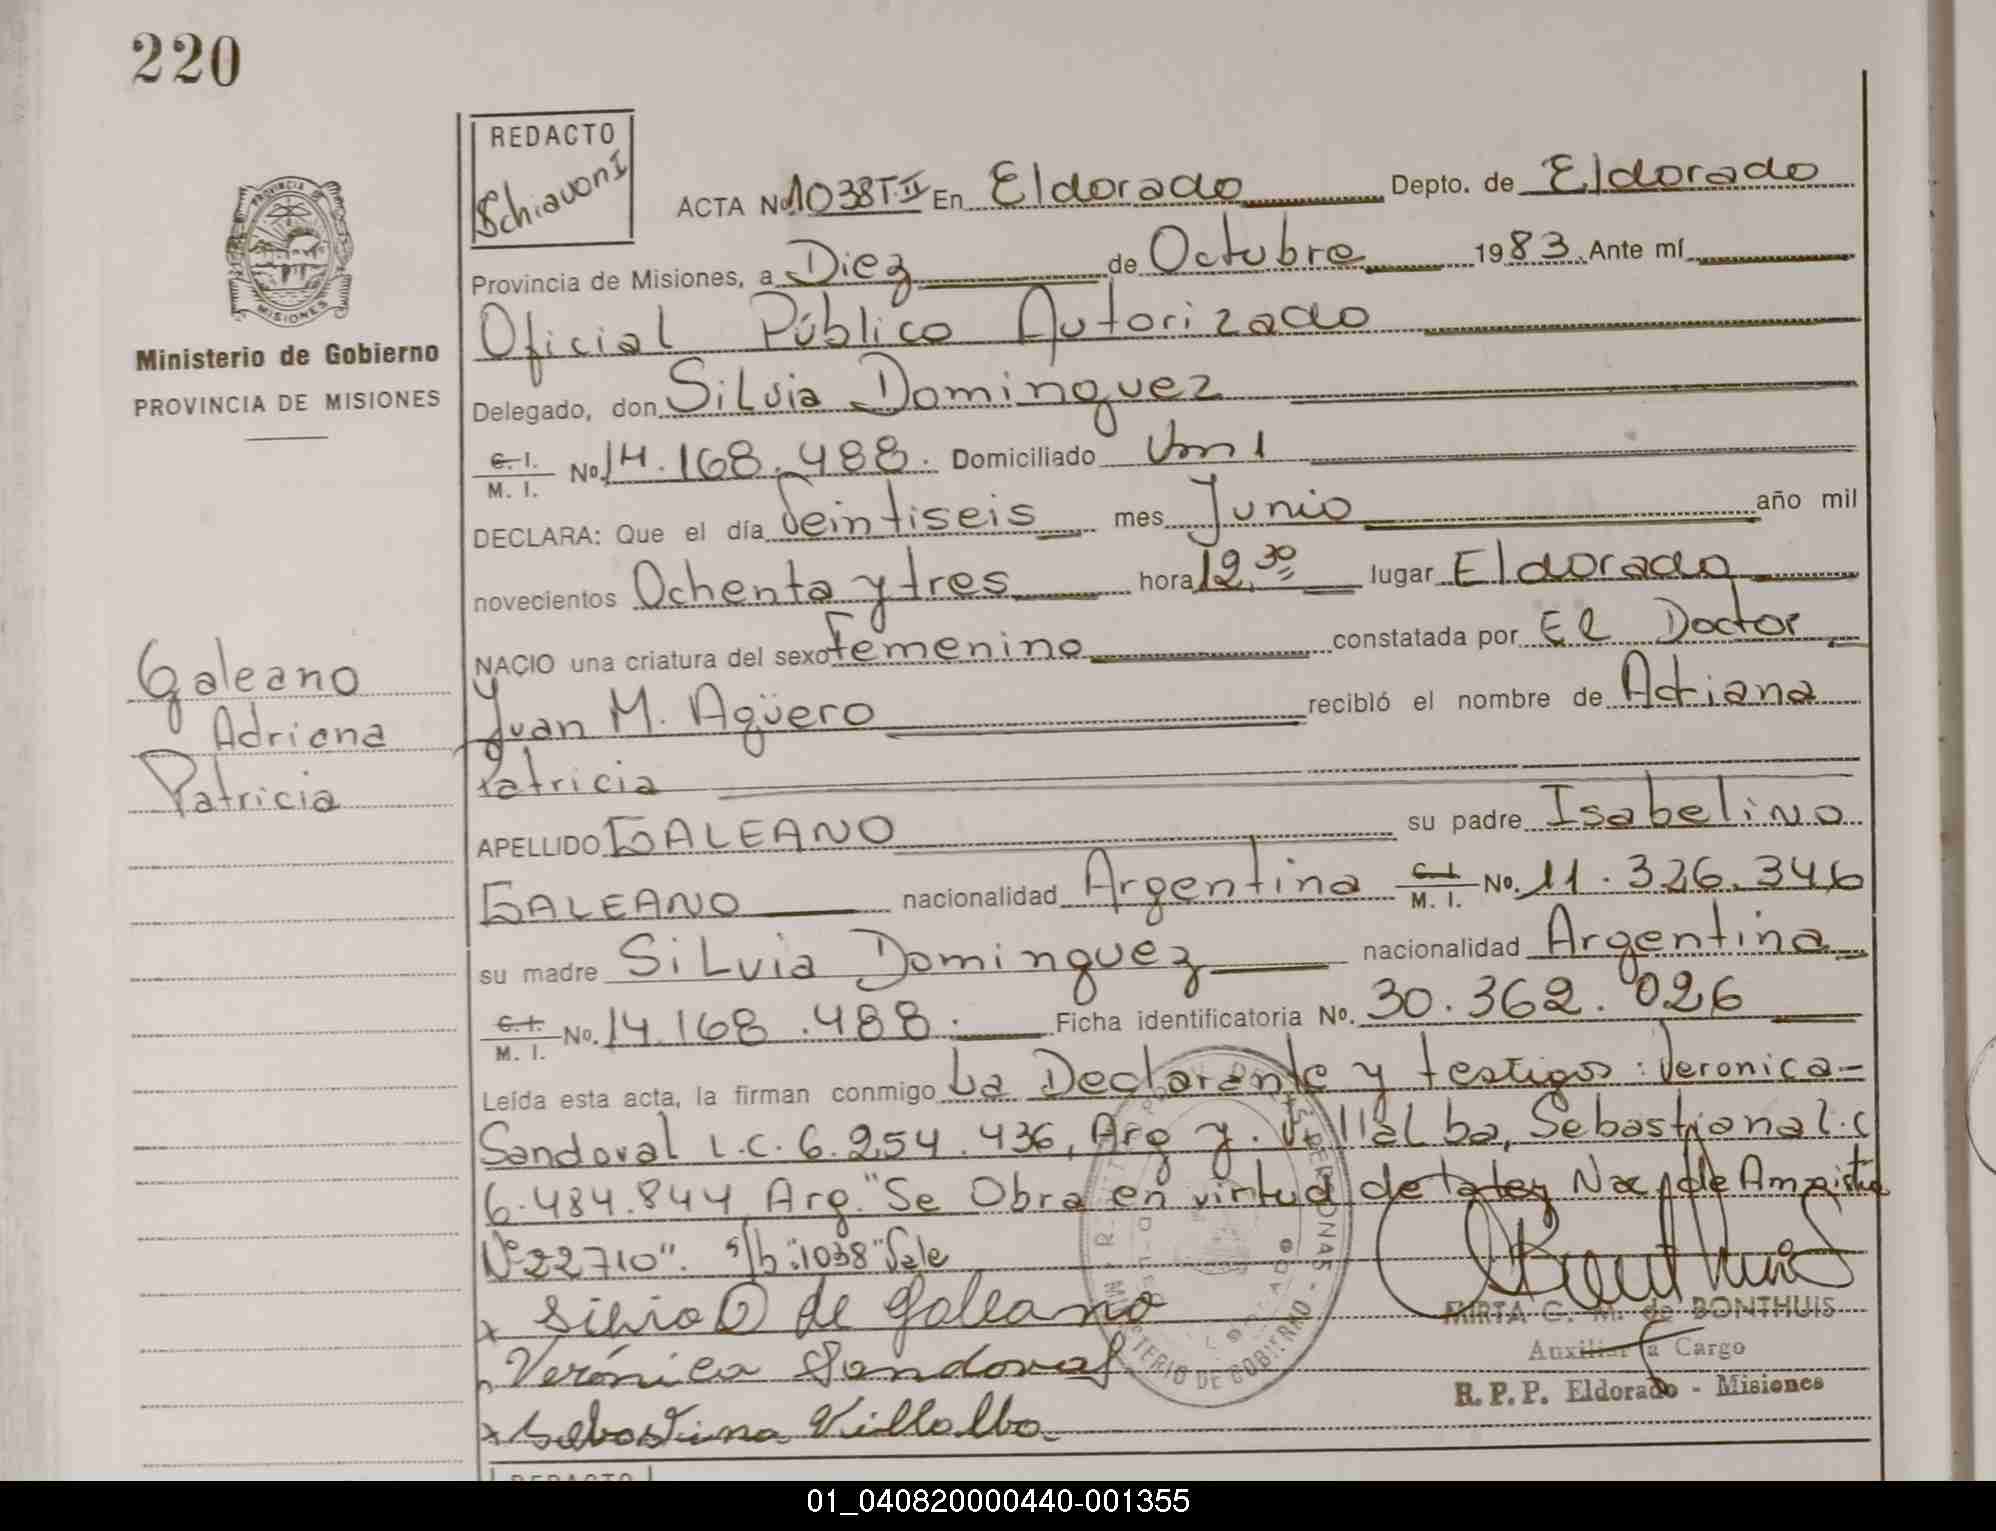 220
REDACTO
Schiavoni
ACTA No 1038 T-II En Eldorado Depto. de Eldorado
Provincia de Misiones, a Diez de Octubre 1983. Ante mí
Oficial Público Autorizado
Delegado, don Silvia Dominguez
C. I. / M. I. No. 14.168.488. Domiciliado Km 1
DECLARA: Que el día Veintiseis mes Junio año mil
novecientos Ochenta y tres hora 12,30 lugar Eldorado
NACIO una criatura del sexo Femenino constatada por El Doctor
Juan M. Agüero recibió el nombre de Adriana
Patricia
APELLIDO GALEANO su padre Isabelino
GALEANO nacionalidad Argentina C. I. / M. I. No. 11.326.346
su madre Silvia Dominguez nacionalidad Argentina
C. I. / M. I. No. 14.168.488. Ficha identificatoria No. 30.362.026
Leída esta acta, la firman conmigo La Declarante y testigos: Veronica-
Sandoval L.C. 6.254.436, Arg y. Villalba, Sebastiana L.C
6.484.844 Arg. "Se Obra en virtud de la Ley Nac de Amnistia
Nº 22710". s/b: "1038" Vale
x Silvia D de Galeano
Verónica Sandoval
x Sebastiana Villalba
MIRTA G. M. de BONTHUIS
Auxiliar a Cargo
R. P. P. Eldorado - Misiones
PROVINCIA DE
MISIONES
Ministerio de Gobierno
PROVINCIA DE MISIONES
Galeano
Adriana
Patricia
MINISTERIO DE GOBIERNO
REDACTO
01_040820000440-001355